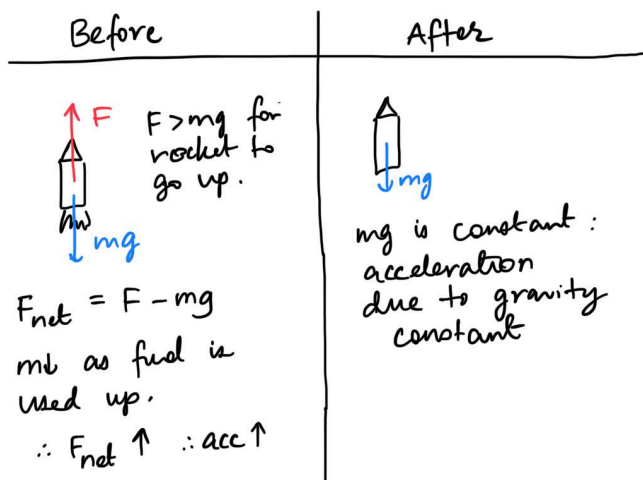 Before
After
F
F>mg for
rocket to
go up.
mg
F_net = F - mg
m↓ as fuel is
used up.
∴ F_net ↑ ∴ acc ↑
mg
mg is constant :
acceleration
due to gravity
constant